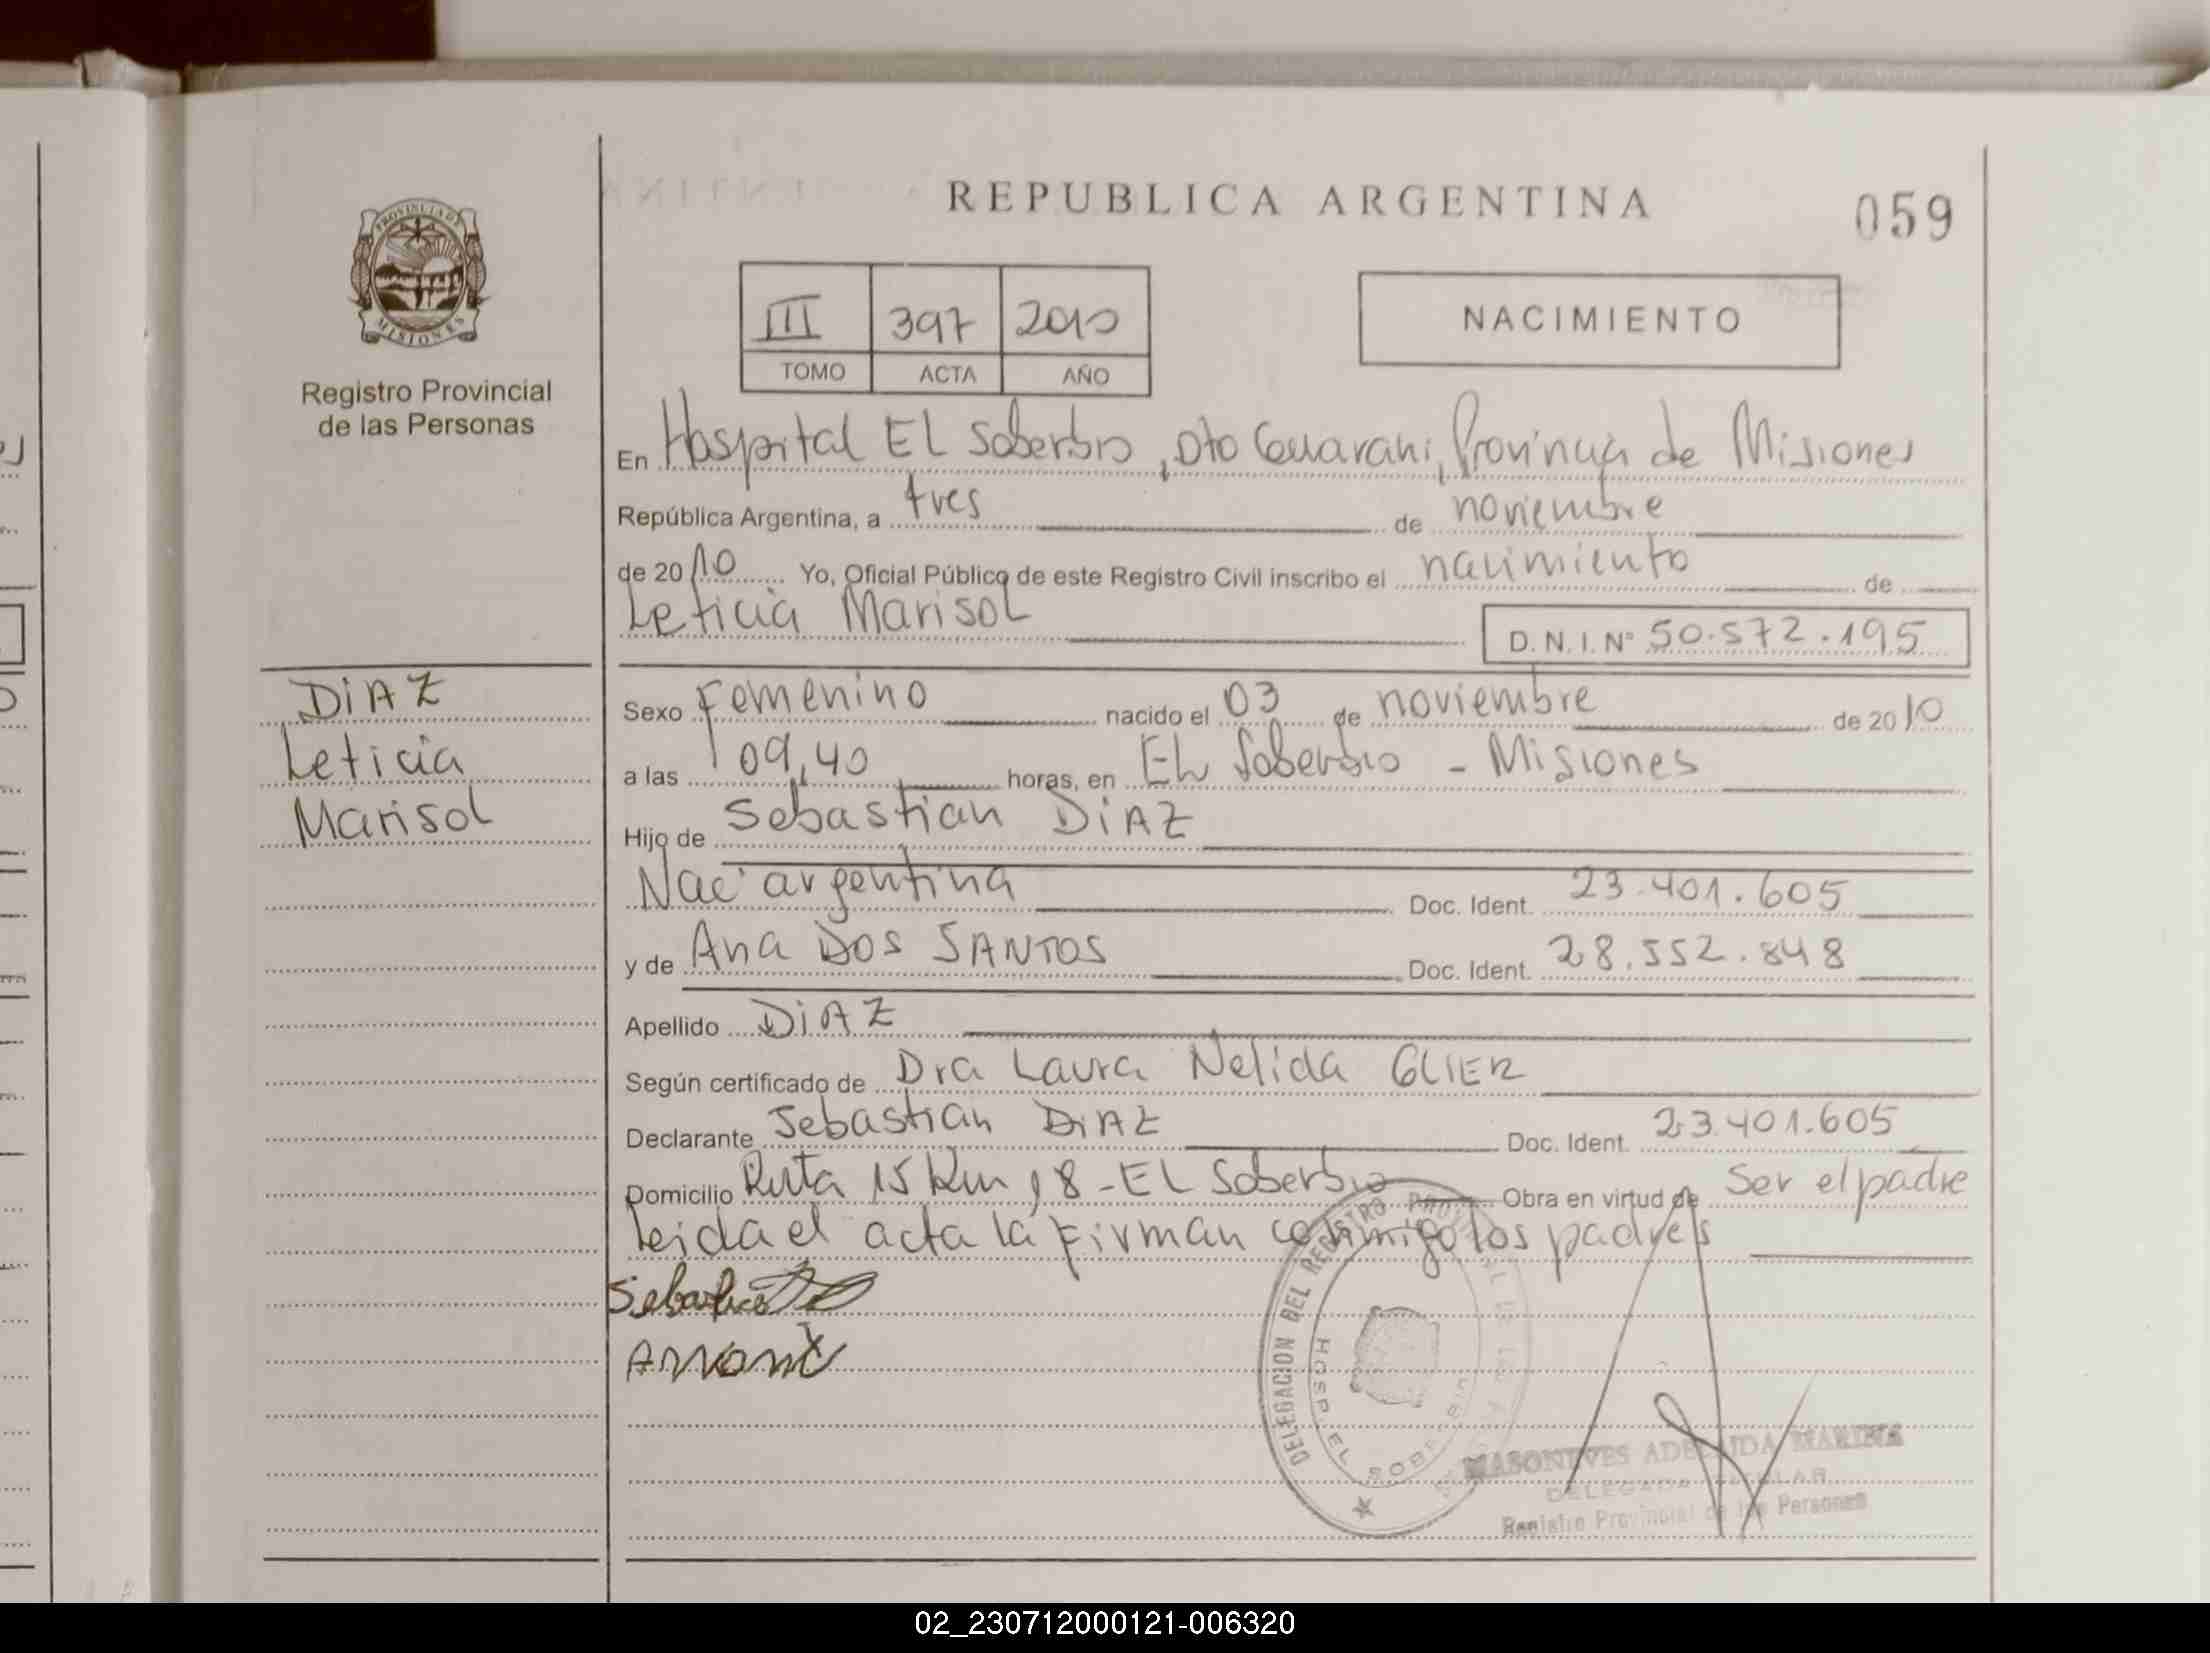 REPUBLICA ARGENTINA
059
PROVINCIA DE
MISIONES
Registro Provincial
de las Personas
III 397 2010
TOMO ACTA AÑO
NACIMIENTO
En Hospital EL Soberbio, Dto Guarani, Provincia de Misiones
República Argentina, a tres de noviembre
de 2010 Yo, Oficial Público de este Registro Civil inscribo el nacimiento de
Leticia Marisol
D.N.I. Nº 50.572.195
DiAZ
Leticia
Marisol
Sexo Femenino nacido el 03 de noviembre de 2010
a las 09,40 horas, en EL Soberbio - Misiones
Hijo de Sebastian DiAZ
Nac argentina Doc. Ident. 23.401.605
y de Ana DOS SANTOS Doc. Ident. 28.552.848
Apellido DiAZ
Según certificado de Dra Laura Nelida GLIER
Declarante Sebastian DiAZ Doc. Ident. 23.401.605
Domicilio Ruta 15 Km 18 - EL Soberbio Obra en virtud de Ser el padre
Leida el acta la firman conmigo los padres
DELEGACION DEL REGISTRO PROVINCIAL DE LAS
HOSP. EL SOBERBIO
ADELAIDA MARINA
DELEGADA TITULAR
Registro Provincial de las Personas
02_230712000121-006320